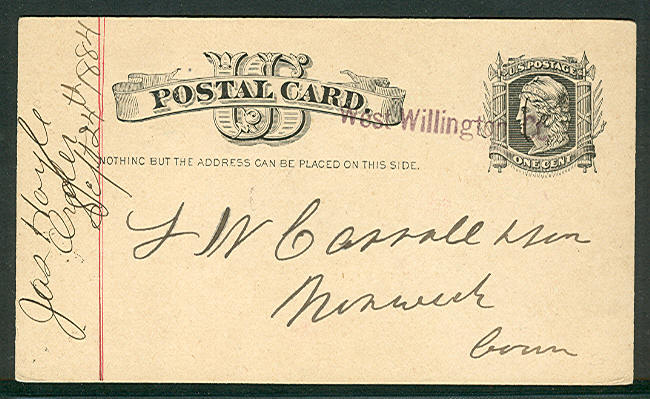 US
POSTAL CARD.
NOTHING BUT THE ADDRESS CAN BE PLACED ON THIS SIDE.
U.S. POSTAGE
ONE CENT
West Willington, Ct.
L W Carroll & Son
Norwich
Conn
Jas Hoyle
Order
Sept 24th 1884